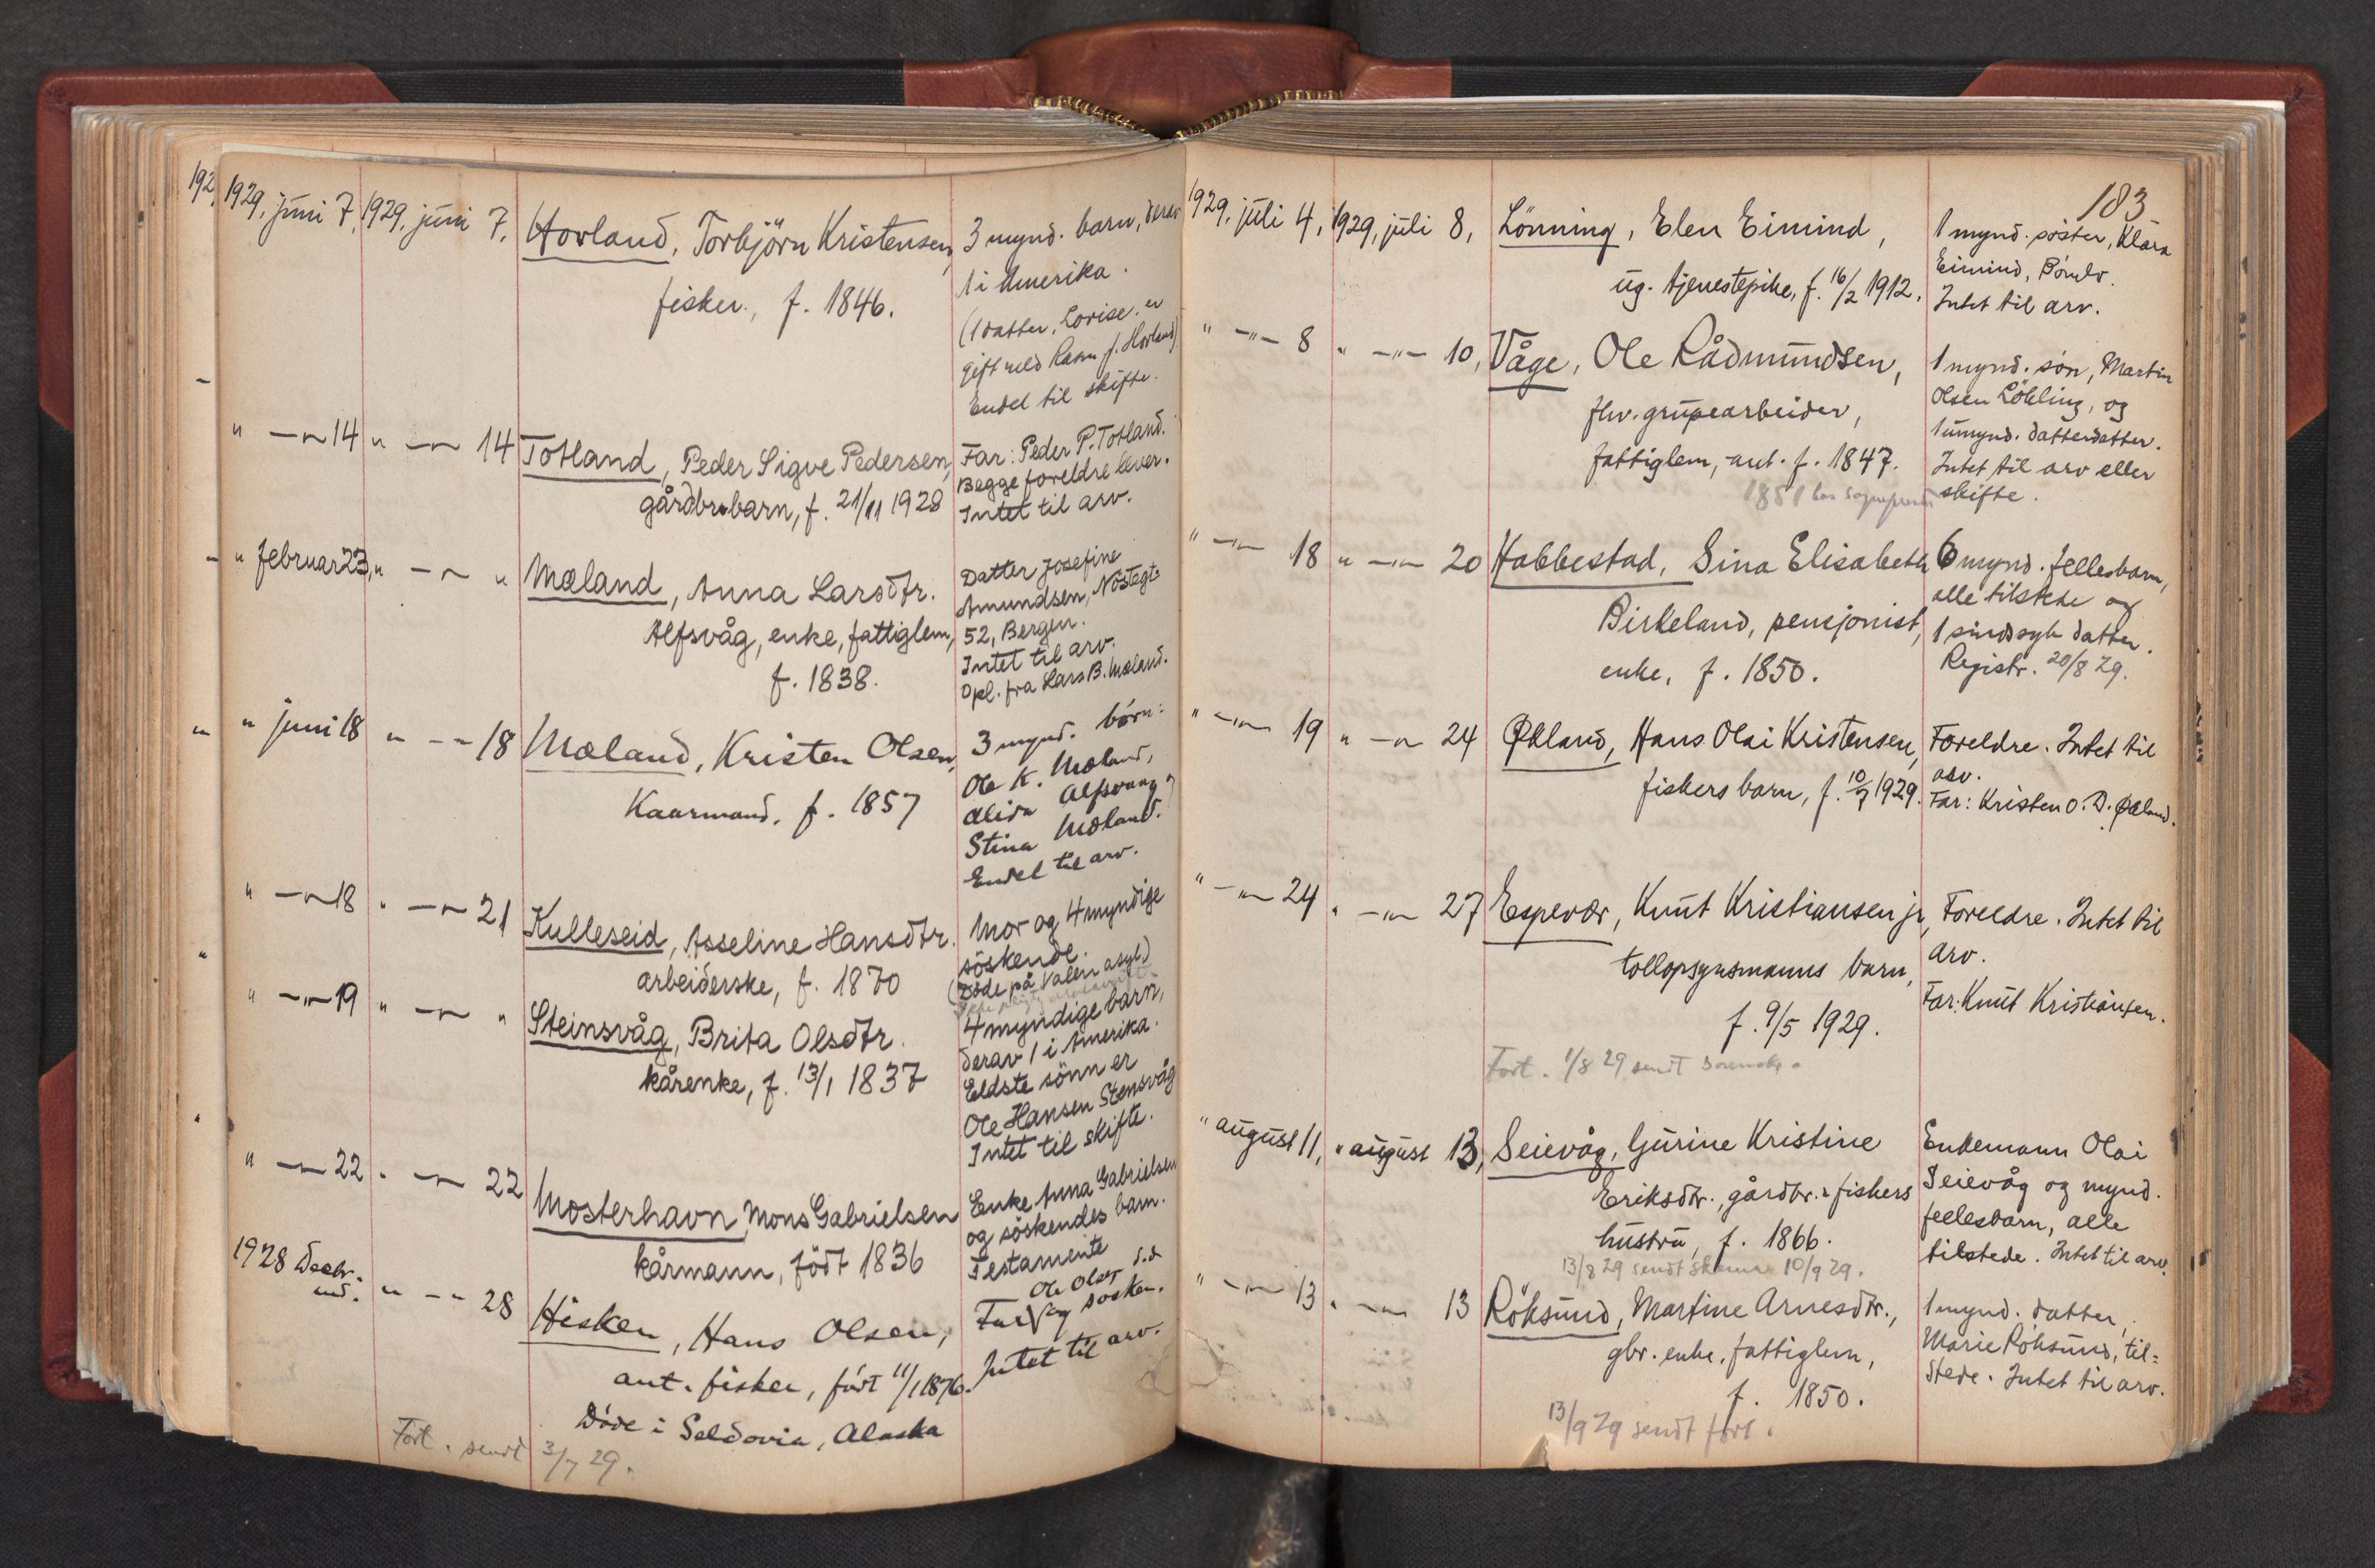 192
1929, juni 7, 1929, juni 7, Hovland, Torbjörn Kristensen, 3 mynd. barn, derav
fisker, f. 1846. 1 i Amerika.
(1 datter, Lovise, er
gift med Rasm. J. Hovland)
Endel til skifte.
" —"— 14 " —"— 14 Totland, Peder Sigve Pedersen, Far: Peder P. Totland.
gårdbr.barn, f. 21/11 1928 Begge foreldre lever.
Intet til arv.
" februar 23, " —"— " Mæland, Anna Larsdtr. Datter Josefine
Alfsvåg, enke, fattiglem, Amundsen, Nöstegt.
f. 1838. 52, Bergen.
Intet til arv.
Opl. fra Lars B. Mæland.
" juni 18 " —"— 18 Mæland, Kristen Olsen, 3 mynd. börn:
Kaarmand, f. 1857 Ole K. Mæland,
Alida Alfsvaag og
Stina Mæland.
Endel til arv.
" —"— 18 " —"— 21 Kulleseid, Asseline Hansdtr. Mor og 4 myndige
arbeiderske, f. 1870 söskende.
(Døde på Valen asyl)
" —"— 19 " —"— " Steinsvåg, Brita Olsdtr. 4 myndige barn,
kårenke, f. 13/1 1837 derav 1 i Amerika.
Eldste sönn er
Ole Hansen Stensvåg
Intet til skifte.
" —"— 22 " —"— 22 Mosterhavn, Mons Gabrielsen Enke Anna Gabrielsen
kårmann, födt 1836 og söskendes barn.
Testamente
1928 Decbr. " —"— 28 Hisken, Hans Olsen, Far Ole Olsen og søsken.
ant. fisker, födt 11/1 1876. Intet til arv.
Døde i Seldovia, Alaska
Fort. sendt 3/7 29.
183
1929, juli 4, 1929, juli 8, Lönning, Elen Eimind, 1 mynd. søster, Klara
ug. tjenestepike, f. 16/2 1912. Eimind, Bömlo.
Intet til arv.
" —"— 8 " —"— 10, Våge, Ole Rådmundsen, 1 mynd. sön, Martin
fhv. grubearbeider, Olsen Lökling, og
fattiglem, ant. f. 1847. 1 umynd. datterdatter.
1851 Intet til arv eller
skifte.
" —"— 18 " —"— 20 Habbestad, Sina Elisabeth 6 mynd. fellesbarn,
Birkeland, pensjonist, alle tilstede og
enke, f. 1850. 1 sindssyk datter.
Registr. 20/8 29.
" —"— 19 " —"— 24 Økland, Hans Olai Kristensen, Foreldre. Intet til
fiskers barn, f. 10/7 1929. arv.
Far: Kristen O. D. Økland.
" —"— 24 " —"— 27 Espevær, Knut Kristiansen jr, Foreldre. Intet til
tollopsynsmanns barn, arv.
f. 9/5 1929. Far: Knut Kristiansen.
Fort. 1/8 29 sendt
" august 11, " august 13, Seievåg, Gurine Kristine Enkemann Olai
Eriksdtr., gårdbr. & fiskers Seievåg og mynd.
hustru, f. 1866. fellesbarn, alle
13/8 29 sendt skema 10/9 29. tilstede. Intet til arv.
" —"— 13 " —"— 13 Röksund, Martine Arnesdtr., 1 mynd. datter,
gbr. enke, fattiglem, Marie Röksund, til=
f. 1850. stede. Intet til arv.
13/9 29 sendt fort.